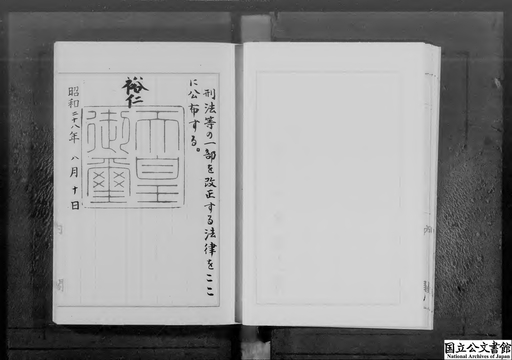 刑法等の一部を改正する法律をここ
に公布する。
裕仁
天皇
御璽
昭和二十八年八月十日
国立公文書館
National Archives of Japan